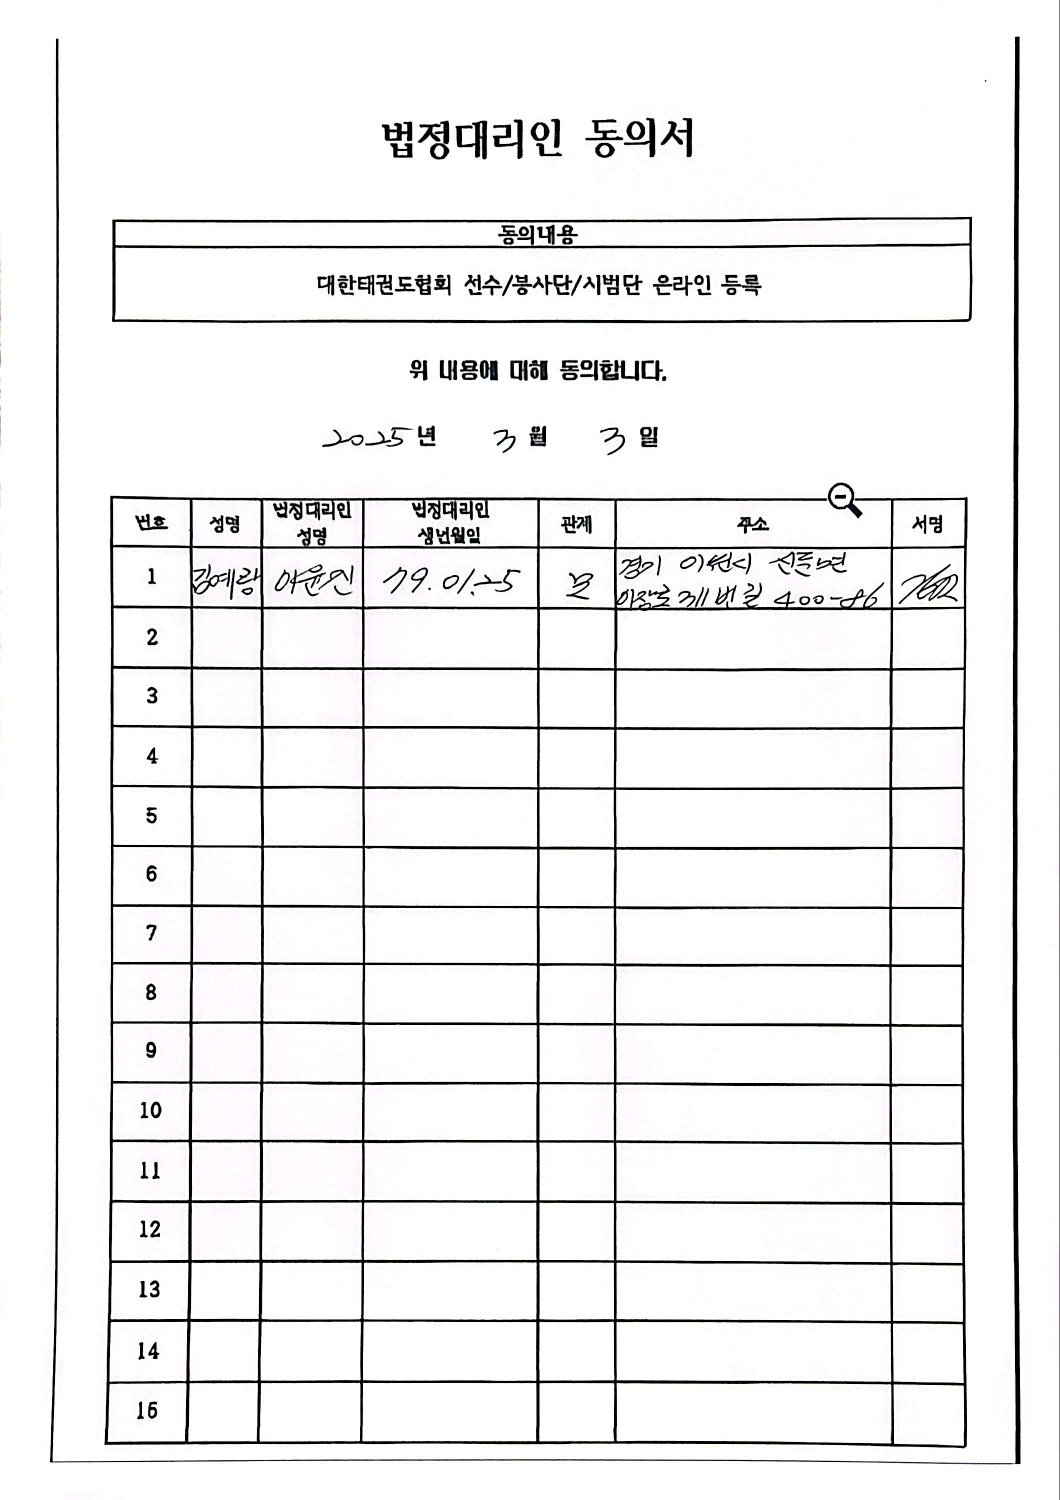 법정대리인 동의서
동의내용
대한태권도협회 선수/봉사단/시범단 온라인 등록
위 내용에 대해 동의합니다.
2025년 3월 3일
번호 성명 법정대리인 성명 법정대리인 생년월일 관계 주소 서명
1 김예랑 이윤진 79.01.25 모 경기 이천시 신둔면
번길 400-86
2
3
4
5
6
7
8
9
10
11
12
13
14
15